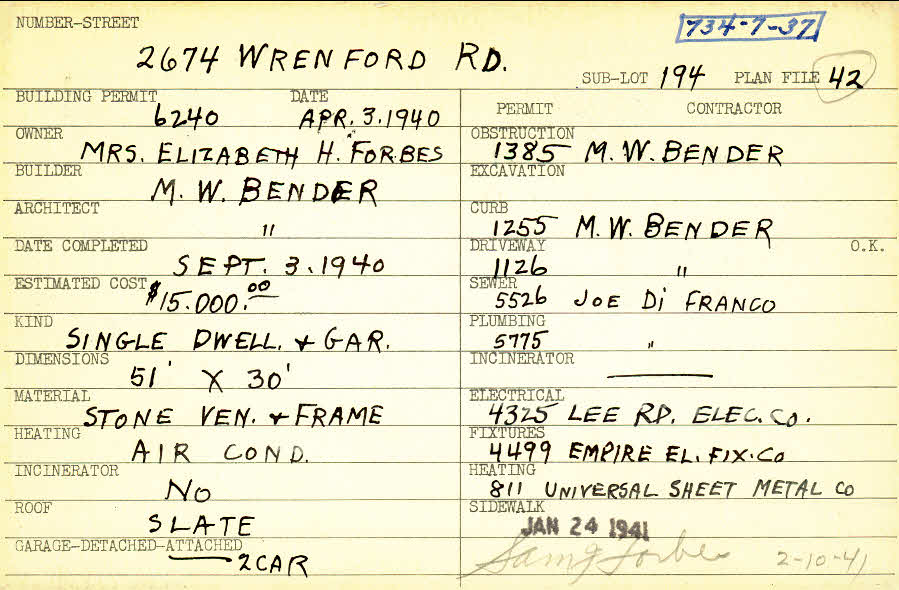 NUMBER-STREET
734-7-37
2674 WRENFORD RD.
SUB-LOT 194 PLAN FILE 42
BUILDING PERMIT DATE
6240 APR. 3. 1940
OWNER
MRS. ELIZABETH H. FORBES
BUILDER
M. W. BENDER
ARCHITECT
"
DATE COMPLETED
SEPT. 3. 1940
ESTIMATED COST
$15.000.00
KIND
SINGLE DWELL. & GAR.
DIMENSIONS
51' X 30'
MATERIAL
STONE VEN. & FRAME
HEATING
AIR COND.
INCINERATOR
NO
ROOF
SLATE
GARAGE-DETACHED-ATTACHED
2 CAR
PERMIT CONTRACTOR
OBSTRUCTION
1385 M. W. BENDER
EXCAVATION
CURB
1255 M. W. BENDER
DRIVEWAY O.K.
1126 "
SEWER
5526 JOE Di FRANCO
PLUMBING
5775 "
INCINERATOR
ELECTRICAL
4325 LEE RD. ELEC. CO.
FIXTURES
4499 EMPIRE EL. FIX. CO
HEATING
811 UNIVERSAL SHEET METAL CO
SIDEWALK
JAN 24 1941
Forbes 2-10-41